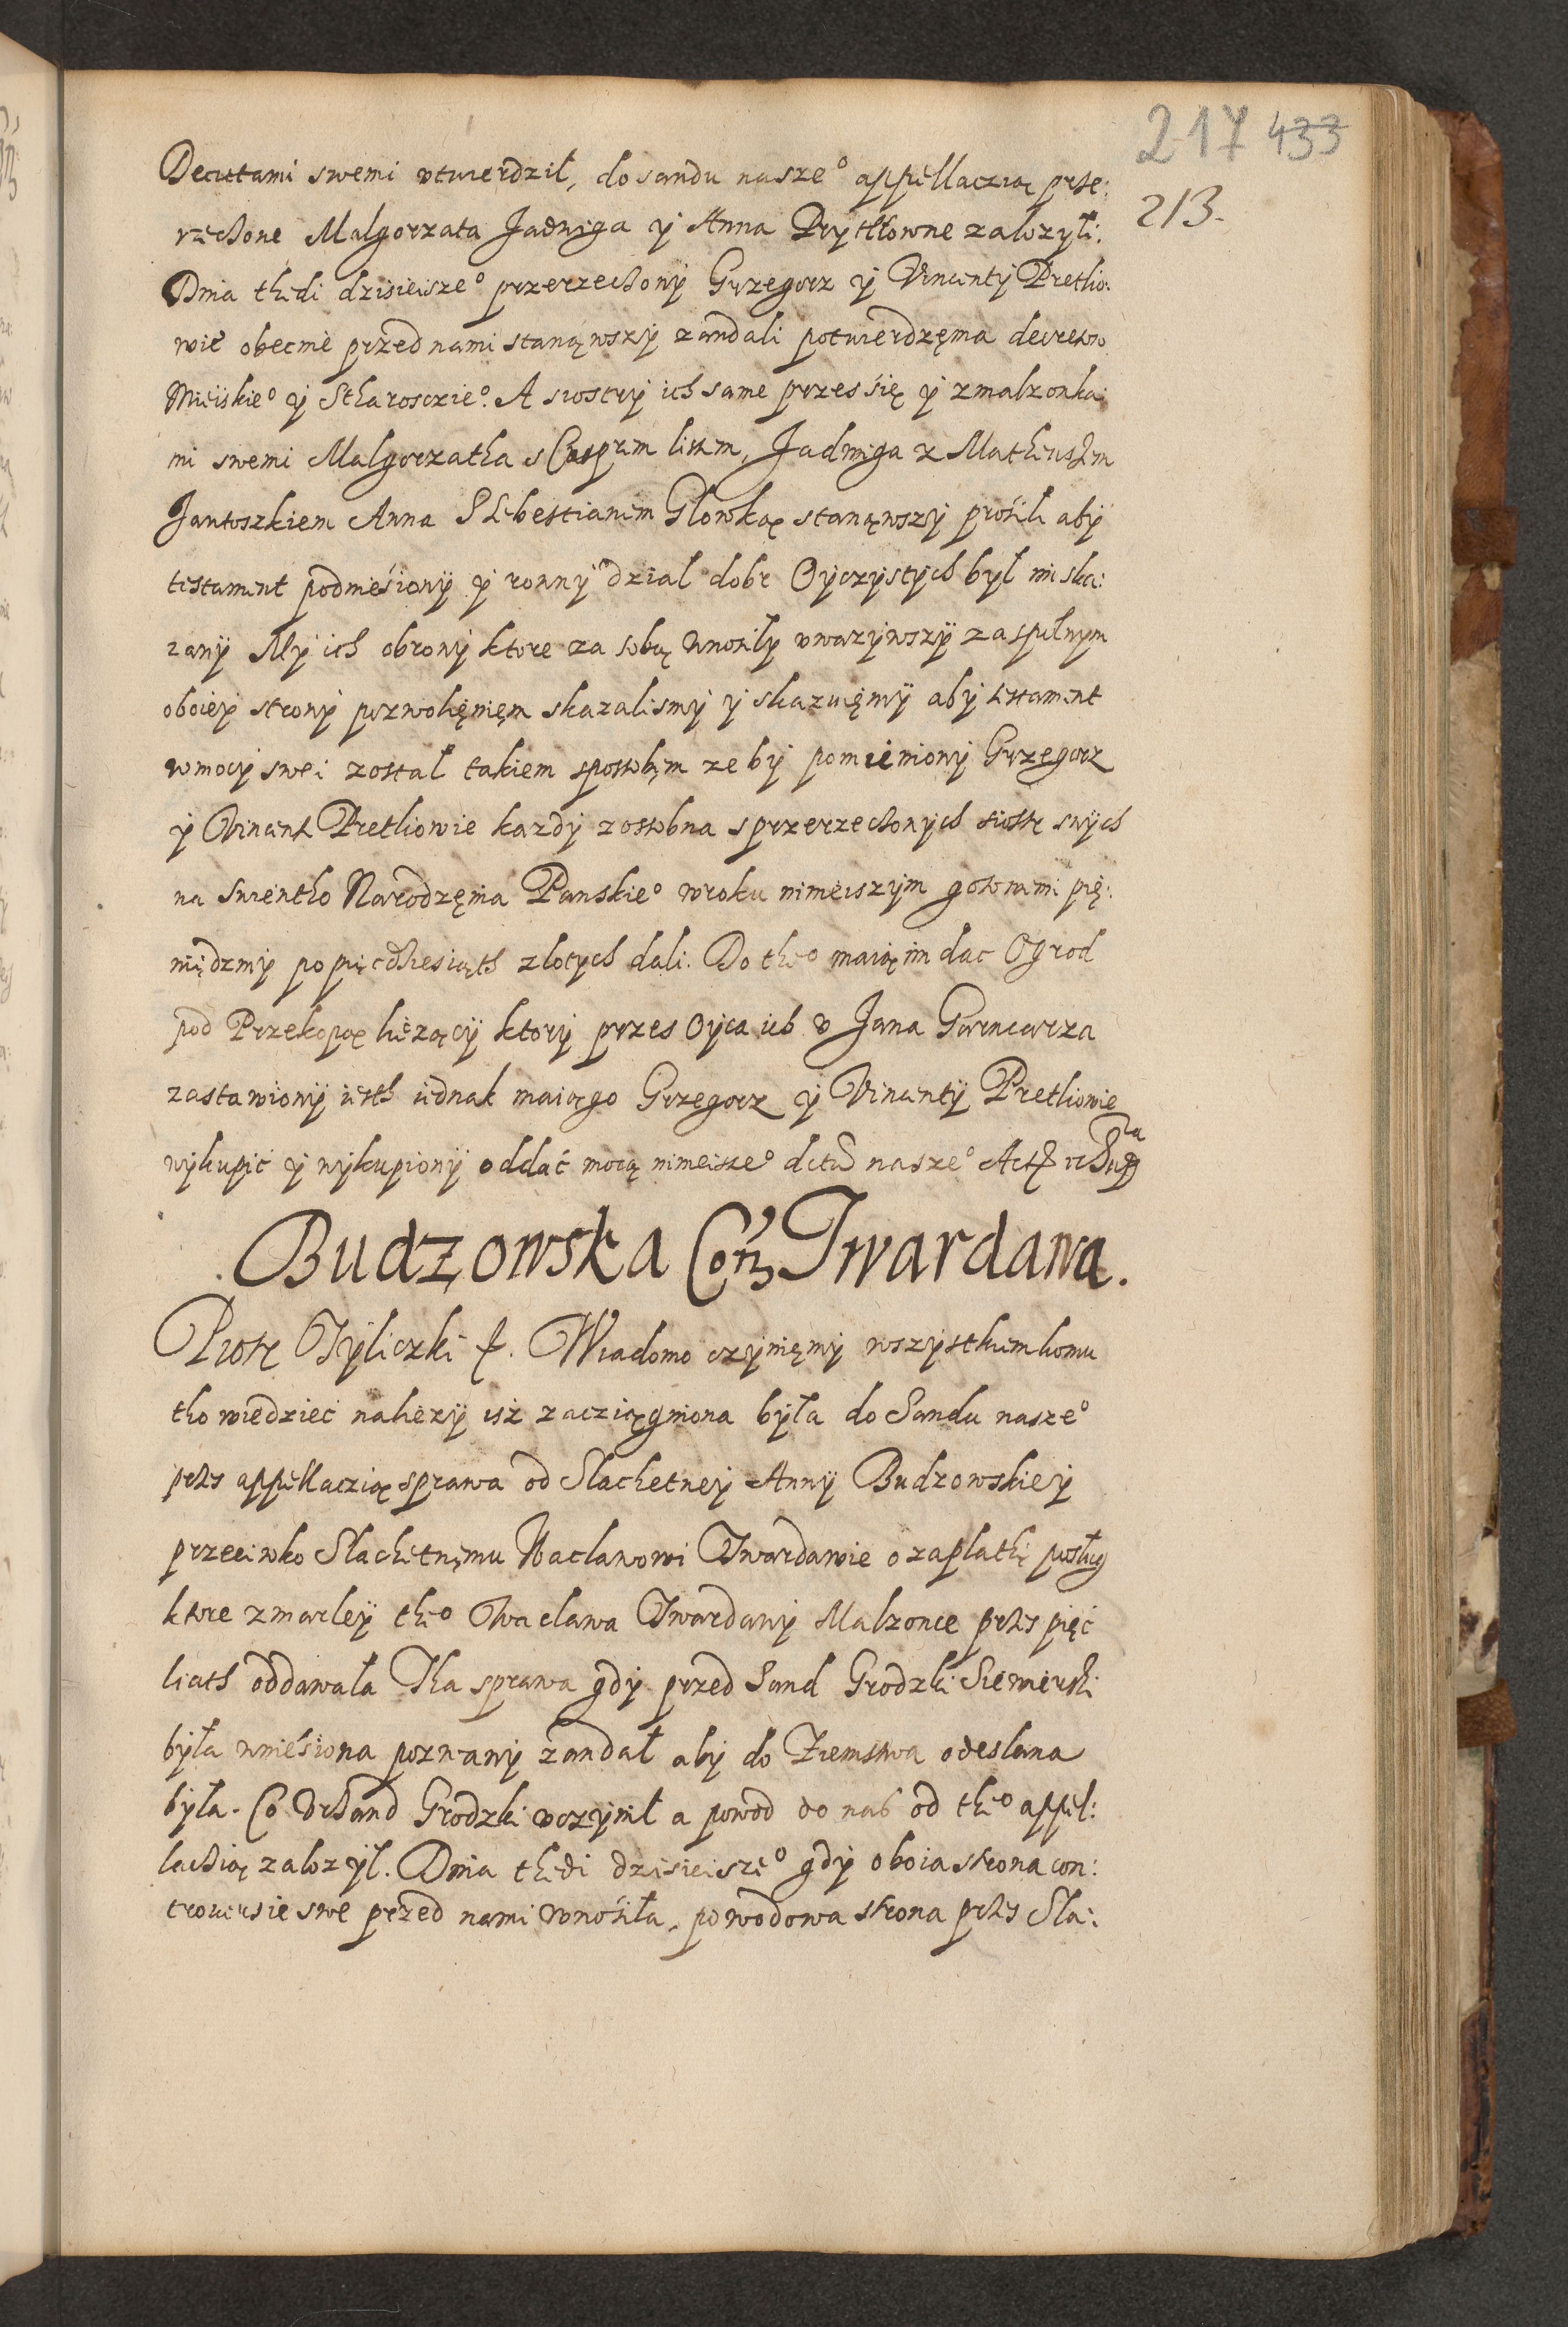 217 433
213.
Decretami swemi vtwierdził, do sandu nasze° appellaczią prze:
rzeczone Malgorzata Jadwiga ÿ Anna Prÿtłowne zalozÿłi.
Dnia thedi dzisieisze° przerzeczonÿ Grzegorz ÿ Vincentÿ Pretlio:
wie obecnie przed nami stanąwszÿ ząndali potwierdzęnia decretow
Mieiskie° ÿ Stharosczie°. A siostrÿ ich same przes się ÿ z malzonka:
mi swemi Malgorzatha s Casprem lissem, Jadwiga z Matheuszem
Jantoszkiem Anna S Sebestianem Glowką stanąwszÿ prosili abÿ
testament podniesionÿ ÿ rownÿ dzial dobr Oÿczÿstÿch był im ska:
zanÿ Mÿ ich obronÿ ktore za sobą wnosiłÿ vwazÿwszÿ za spulnÿm
oboieÿ stronÿ pozwolęnięm skazalismÿ ÿ skazuięmÿ abÿ testament
w mocÿ swei zostal takiem sposobęm ze bÿ pomienionÿ Grzegorz
ÿ Vincent Pretliowie kazdÿ z osobna s przerzeczonÿch siostr swÿch
na swientho Narodzęnia Panskie° w roku ninieiszÿm gotowimi pię:
niędzmÿ po pięcdziesiąth zlotÿch dali. Do the° maią im dac Ogrod
pod Przekopą lieżącÿ ktorÿ przes Oÿca ich v Jana Garncarza
zastawionÿ iesth iednak maią go Grzegorz ÿ Vincentÿ Pretliowie
wÿkupić ÿ wÿkupionÿ oddać mocą ninieisze° dctu nasze° Act vt supra
Budzowska Con Twardawa.
Piotr Tÿliczki &. Wiadomo czÿnięmÿ wszÿstkiem komu
tho wiedzieć nalieży isz zacziągniona bÿła do Sandu nasze°
przes appellaczią sprawa od Slachetneÿ Annÿ Budzowskieÿ
przeciwko Slachetnęmu Waclawowi Twardawie o zaplathę posług
ktore zmarleÿ the° Waclawa Twardawÿ Malzonce przes pięć
liath oddawała Tha sprawa gdÿ przed Sand Grodzki Siewierski
bÿła wniesiona pozwanÿ ząndał abÿ do Ziemstwa odeslana
bÿła. Co Vrzand Grodzki vczÿnił a powod do nas od the° appel:
laczią zalozÿł. Dnia thedi dzisieisze° gdÿ oboia strona con:
trowersie swe przed nami wnosiła, powodowa strona przes Sla: